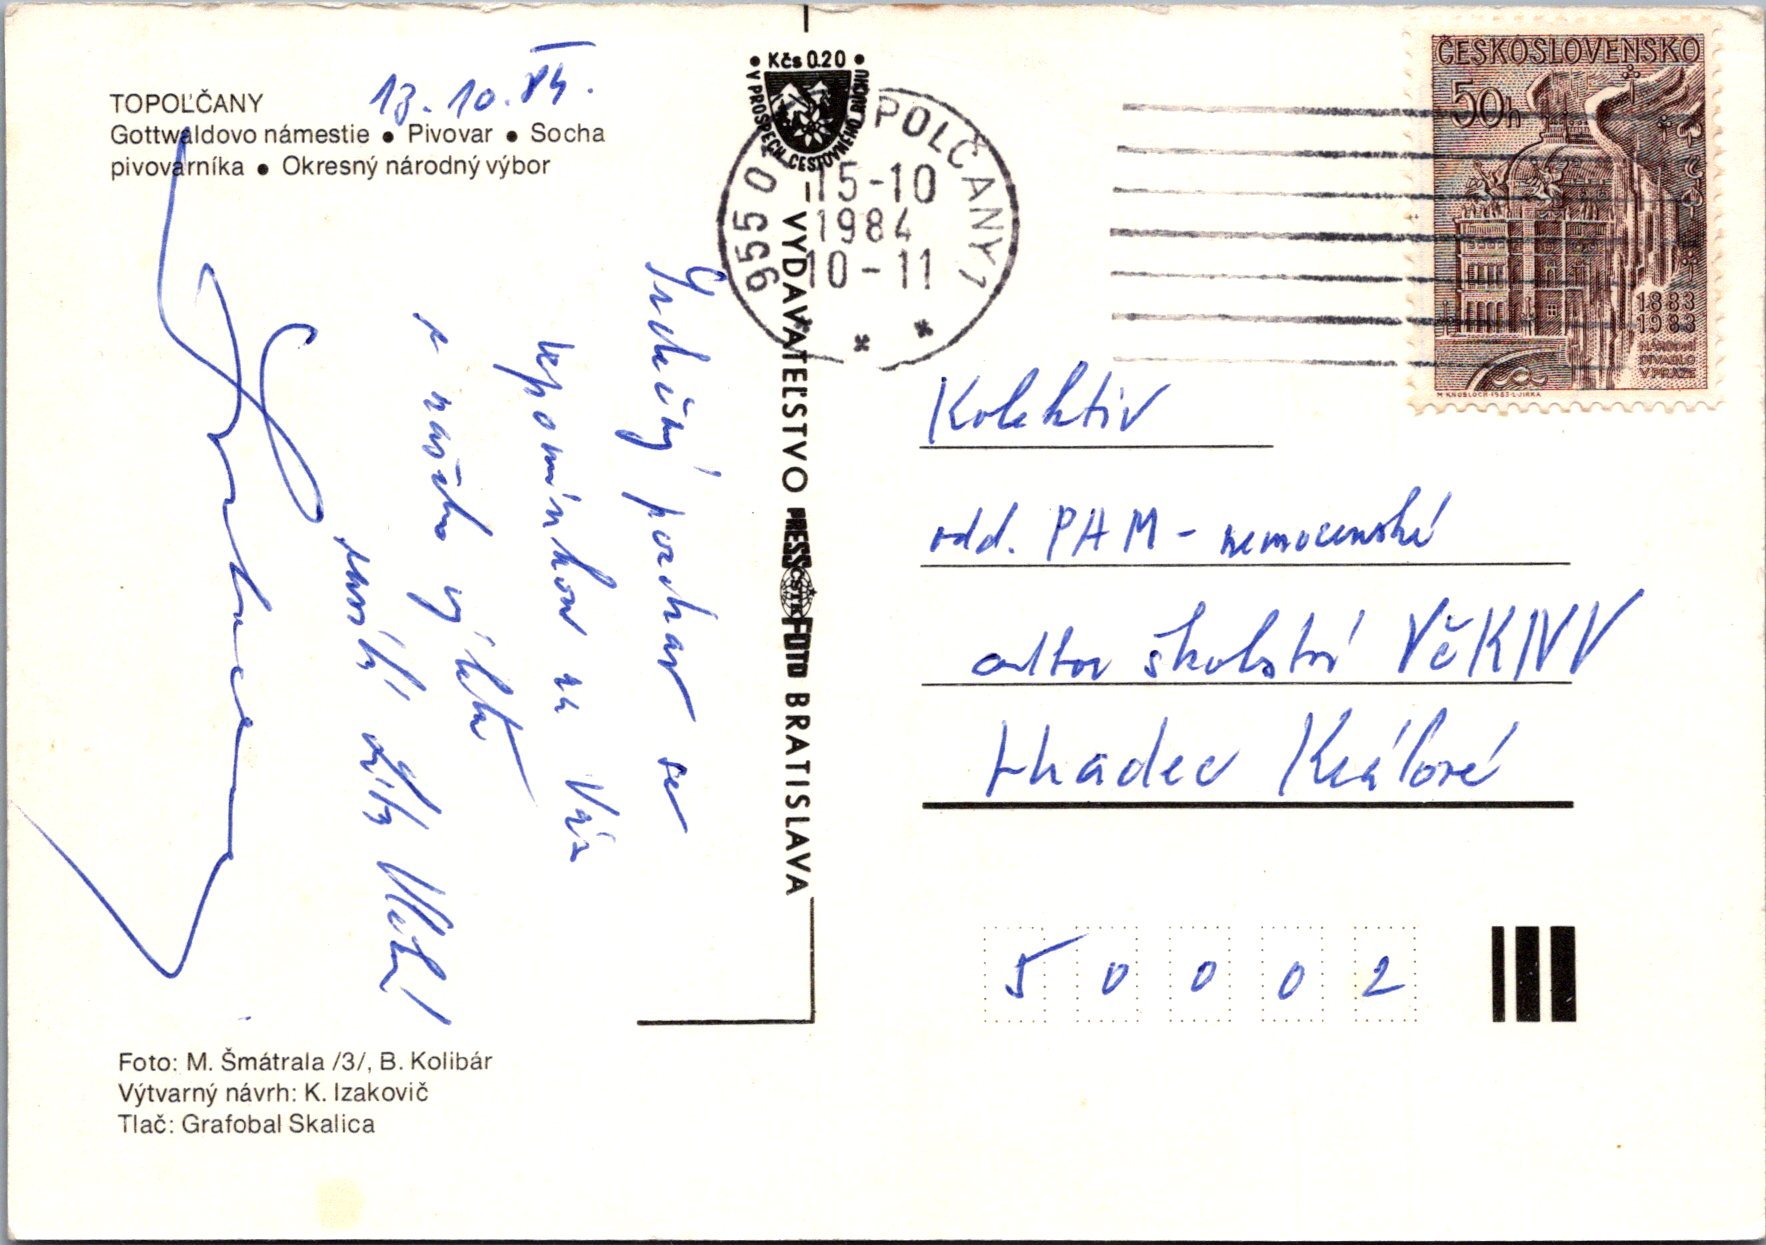 TOPOĽČANY
Gottwaldovo námestie ● Pivovar ● Socha
pivovarníka ● Okresný národný výbor
13.10.84.
Srdečný pozdrav se
vzpomínkou na Vás
z našeho výletu
zasílá
Kčs 0.20
V PROSPECH CESTOVNÉHO RUCHU
955 01 TOPOĽČANY 1
15-10
1984
10-11
VYDAVATEĽSTVO PRESSFOTO BRATISLAVA
ČSTK
ČESKOSLOVENSKO
50h
1883
1983
NÁRODNÍ
DIVADLO
V PRAZE
M KNOBLOCH·1983·L·JIRKA
Kolektiv
odd. PAM - nemocenské
odbor školství VčKNV
Hradec Králové
50002
Foto: M. Šmátrala /3/, B. Kolibár
Výtvarný návrh: K. Izakovič
Tlač: Grafobal Skalica